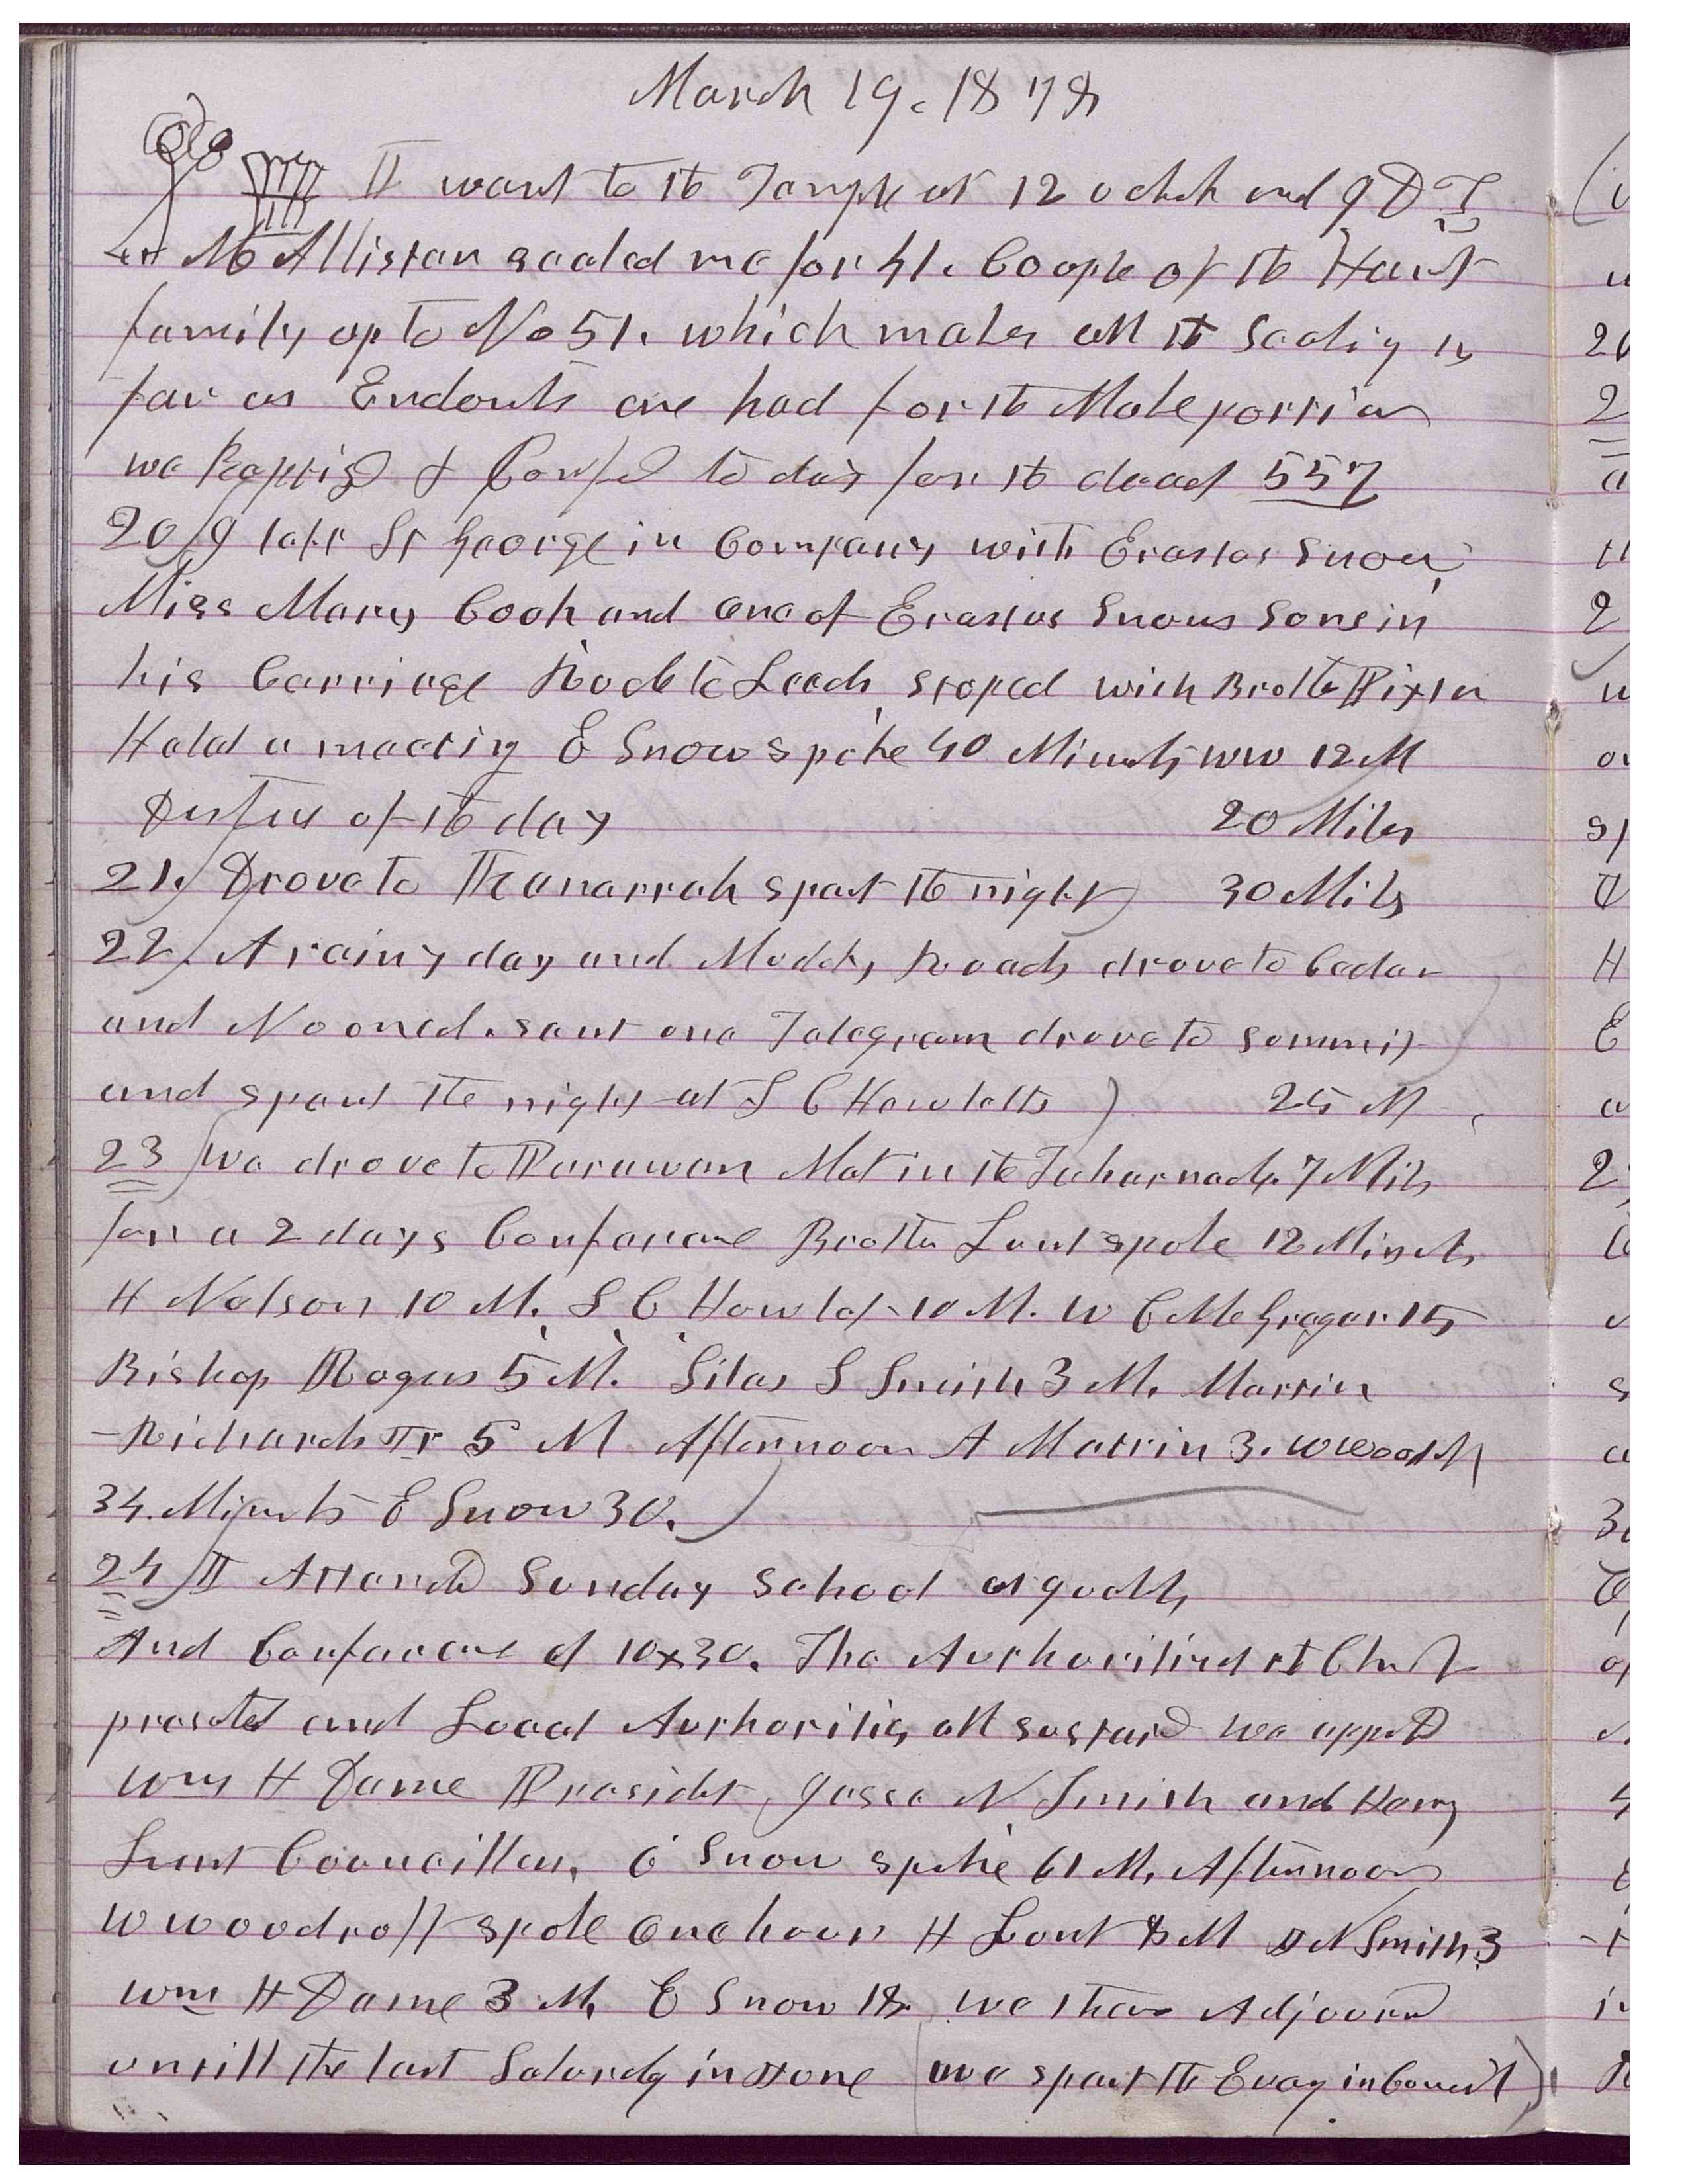 March 19. 1878
I went to the Temple at 12 oclok and J D T
McAllister sealed me for 41. Couple of the Hart
family up to No 51. which makes all the Sealing as
far as Endowts are had for the Male portion
we Baptisd & Confd to day for the dead 557
20 left St George in Company with Erastus Snow,
Miss Mary Cook and one of Erastus Snows Sons in
his Carriage Rode to Leeds stoped with Brother
Held a meeting E Snow spoke 40 Minuts WW 12 M
Distus of the day 20 Miles
21. Drove to Kanarrah spent the night 30 Mils
22. A rainy day and Muddy Roads drove to Cedar
and Nooned. sent one Telegram drove to Summit
and spent the night at S C Howletts 25 M
23 we drove to Parawan Met in the Tabarnacle. 7 Mils
for a 2 days Conferance Brother Lunt spoke 12 Minuts
H Nelson 10 M. S C Howlet 10 M. W C McGregor 15
Bishop Rogers 5 M. Silas S Smith 3 M. Morrin
Richards Jr 5 M Afternoon A Martin 3. W Woodruff
34. Minuts E Snow 30.
24 I Attended Sunday School at 9 oclk
And Conferance at 10x30. The Authorities of the Church
presented and Local Authorities all sustaind we appntd
Wm H Dame Presidet Jesse N Smith and Henry
Lunt Councillors, E Snow spoke 61 M. Afternoon
W Woodruff spoke One hour H Lunt 8 M J N Smith 3
Wm H Dame 3 M, E Snow 18. we then Adjournd
untill the last Saturdy in June we spent the Eveng in Council